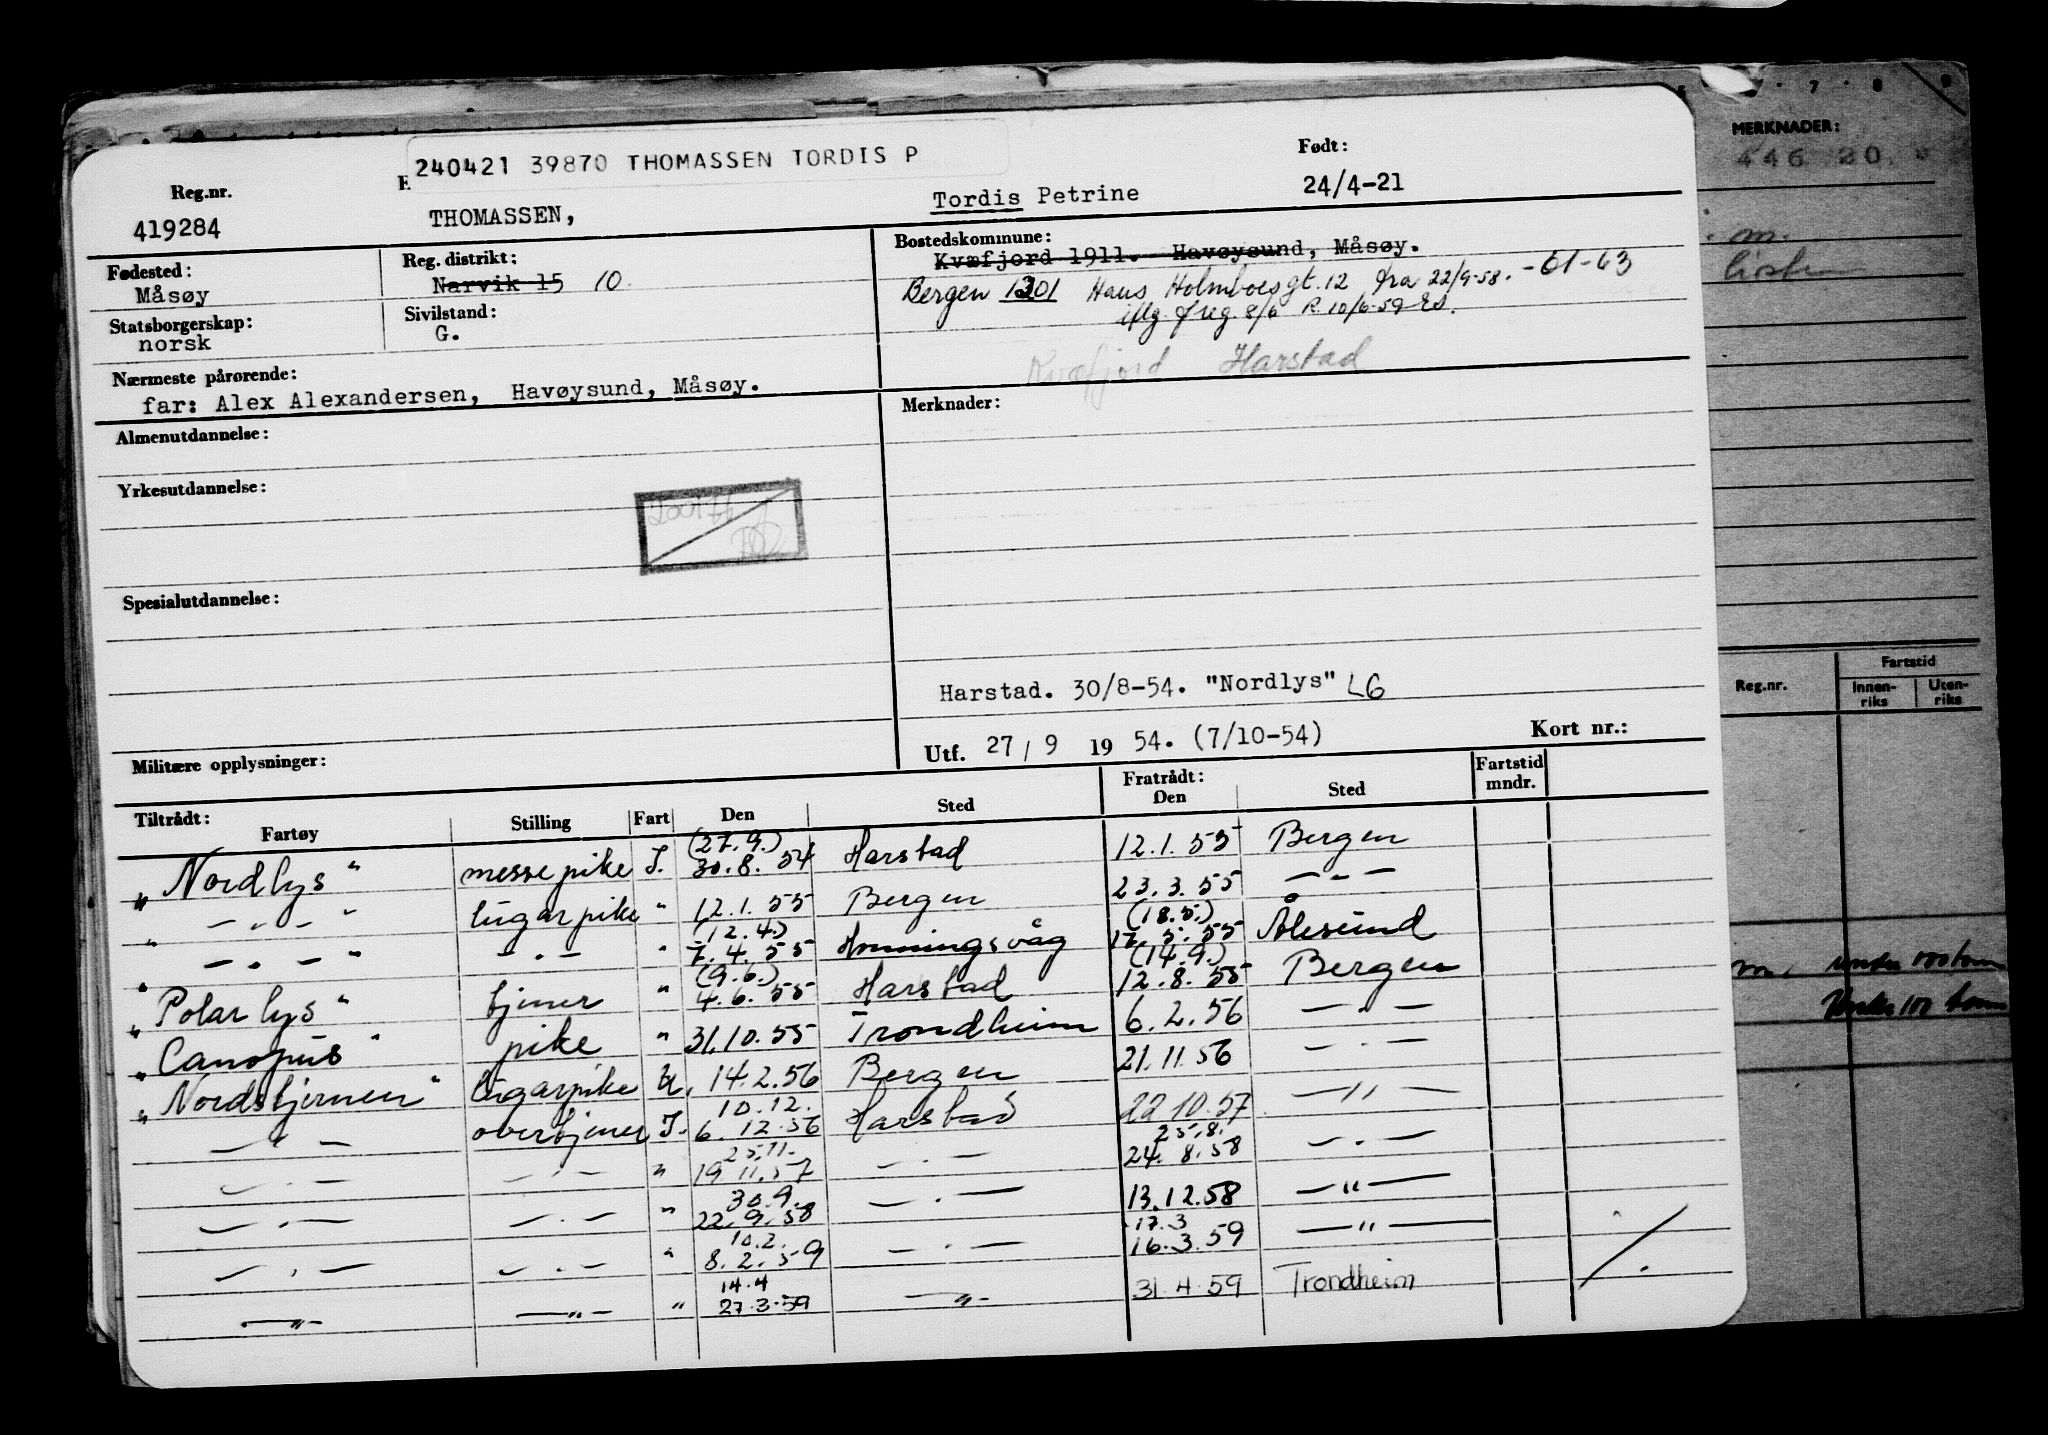 240421 39870 THOMASSEN TORDIS P
Reg.nr.
419284
THOMASSEN,
Tordis Petrine
Født:
24/4-21
Fødested:
Måsøy
Reg. distrikt:
Narvik 15 10
Bostedskommune:
Kvæfjord 1911. Havøysund, Måsøy.
Bergen 1301 Hans Holmboesgt. 12 fra 22/9-58. -61-63
iflg. freg. 8/6 R. 10/6-59
Kvæfjord Harstad
Statsborgerskap:
norsk
Sivilstand:
G.
Nærmeste pårørende:
far: Alex Alexandersen, Havøysund, Måsøy.
Merknader:
Almenutdannelse:
Yrkesutdannelse:
Spesialutdannelse:
Harstad. 30/8-54. "Nordlys" LG
Utf. 27/9 1954. (7/10-54)
Kort nr.:
Militære opplysninger:
Tiltrådt: Fartøy Stilling Fart Den Sted Fratrådt: Den Sted Fartstid mndr.
(27.9.)
"Nordlys" messepike I. 30.8.54 Harstad 12.1.55 Bergen
" - " - " lugarpike " 12.1.55 Bergen 23.3.55 - " -
(12.4.) (18.5.)
" - " - " - " - " 7.4.55 Honningsvåg 17.5.55 Ålesund
(9.6.) (14.9.)
"Polarlys" tjener " 4.6.55 Harstad 12.8.55 Bergen
"Canopus" pike " 31.10.55 Trondheim 6.2.56 - " -
"Nordstjernen" lugarpike U. 14.2.56 Bergen 21.11.56 - " -
10.12.
- " - overtjener I. 6.12.56 Harstad 22.10.57 - " -
25.11. 25.8.
- " - - " - " 19.11.57 - " - 24.8.58 - " -
30.9.
- " - - " - " 22.9.58 - " - 13.12.58 - " -
10.2. 17.3
- " - - " - " 8.2.59 - " - 16.3.59 - " -
14.4
- " - - " - " 27.3.59 - " - 31.4.59 Trondheim
7 8 9
MERKNADER:
446 20
m.
Reg.nr.
Fartstid
Innen-
riks
Uten-
riks
under 100 tonn
100 tonn